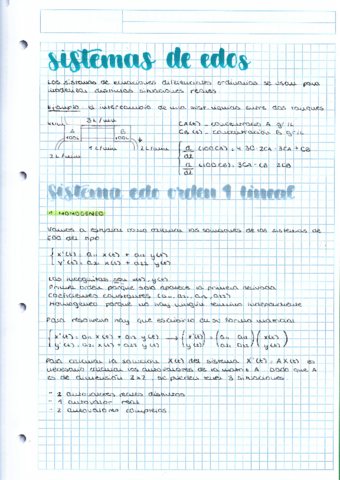 sistemas de edos
Los sistemas de ecuaciones diferenciales ordinarias se usan para
modelizar distintas situaciones reales
Ejemplo: el intercambio de una sustancia entre dos tanques
3 L/min
CA(t) - concentración A g/L
CB(t) - concentración B g/L
A
B
100L
100L
4 L/min
2 L/min
2 L/min
d/dt (100CA) =
d/dt (100CB) = 3CA -
sistema edo orden 1 lineal
HOMOGENEO
Vamos a estudiar como calcular las soluciones de los sistemas de
EDO del tipo
x'(t) = a11 x(t) + a12 y(t)
y'(t) = a21 x(t) + a22 y(t)
Las incógnitas son x(t), y(t)
Primer orden porque solo aparece la primera derivada
Coeficientes constantes (a11, a12, a21, a22)
Homogéneo porque no hay ningún término independiente
Para resolverlo hay que escribirlo en su forma matricial
x'(t) = a11 x(t) + a12 y(t) → (x'(t)) = (a11 a12) (x(t))
y'(t) = a21 x(t) + a22 y(t) (y'(t)) (a21 a22) (y(t))
Para calcular la solución X(t) del sistema X'(t) = AX(t) es
necesario calcular los autovalores de la matriz A. Dado que A
es de dimensión 2x2, se pueden tener 3 situaciones
- 2 autovalores reales distintos
- 1 autovalor real
- 2 autovalores complejos